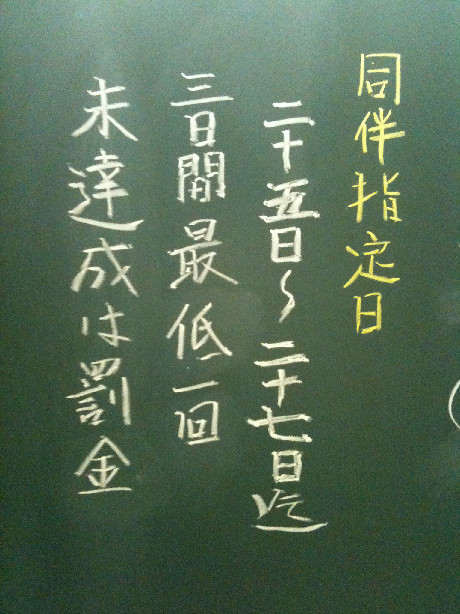 同伴指定日
二十五日~二十七日迄
三日間最低一回
未達成は罰金